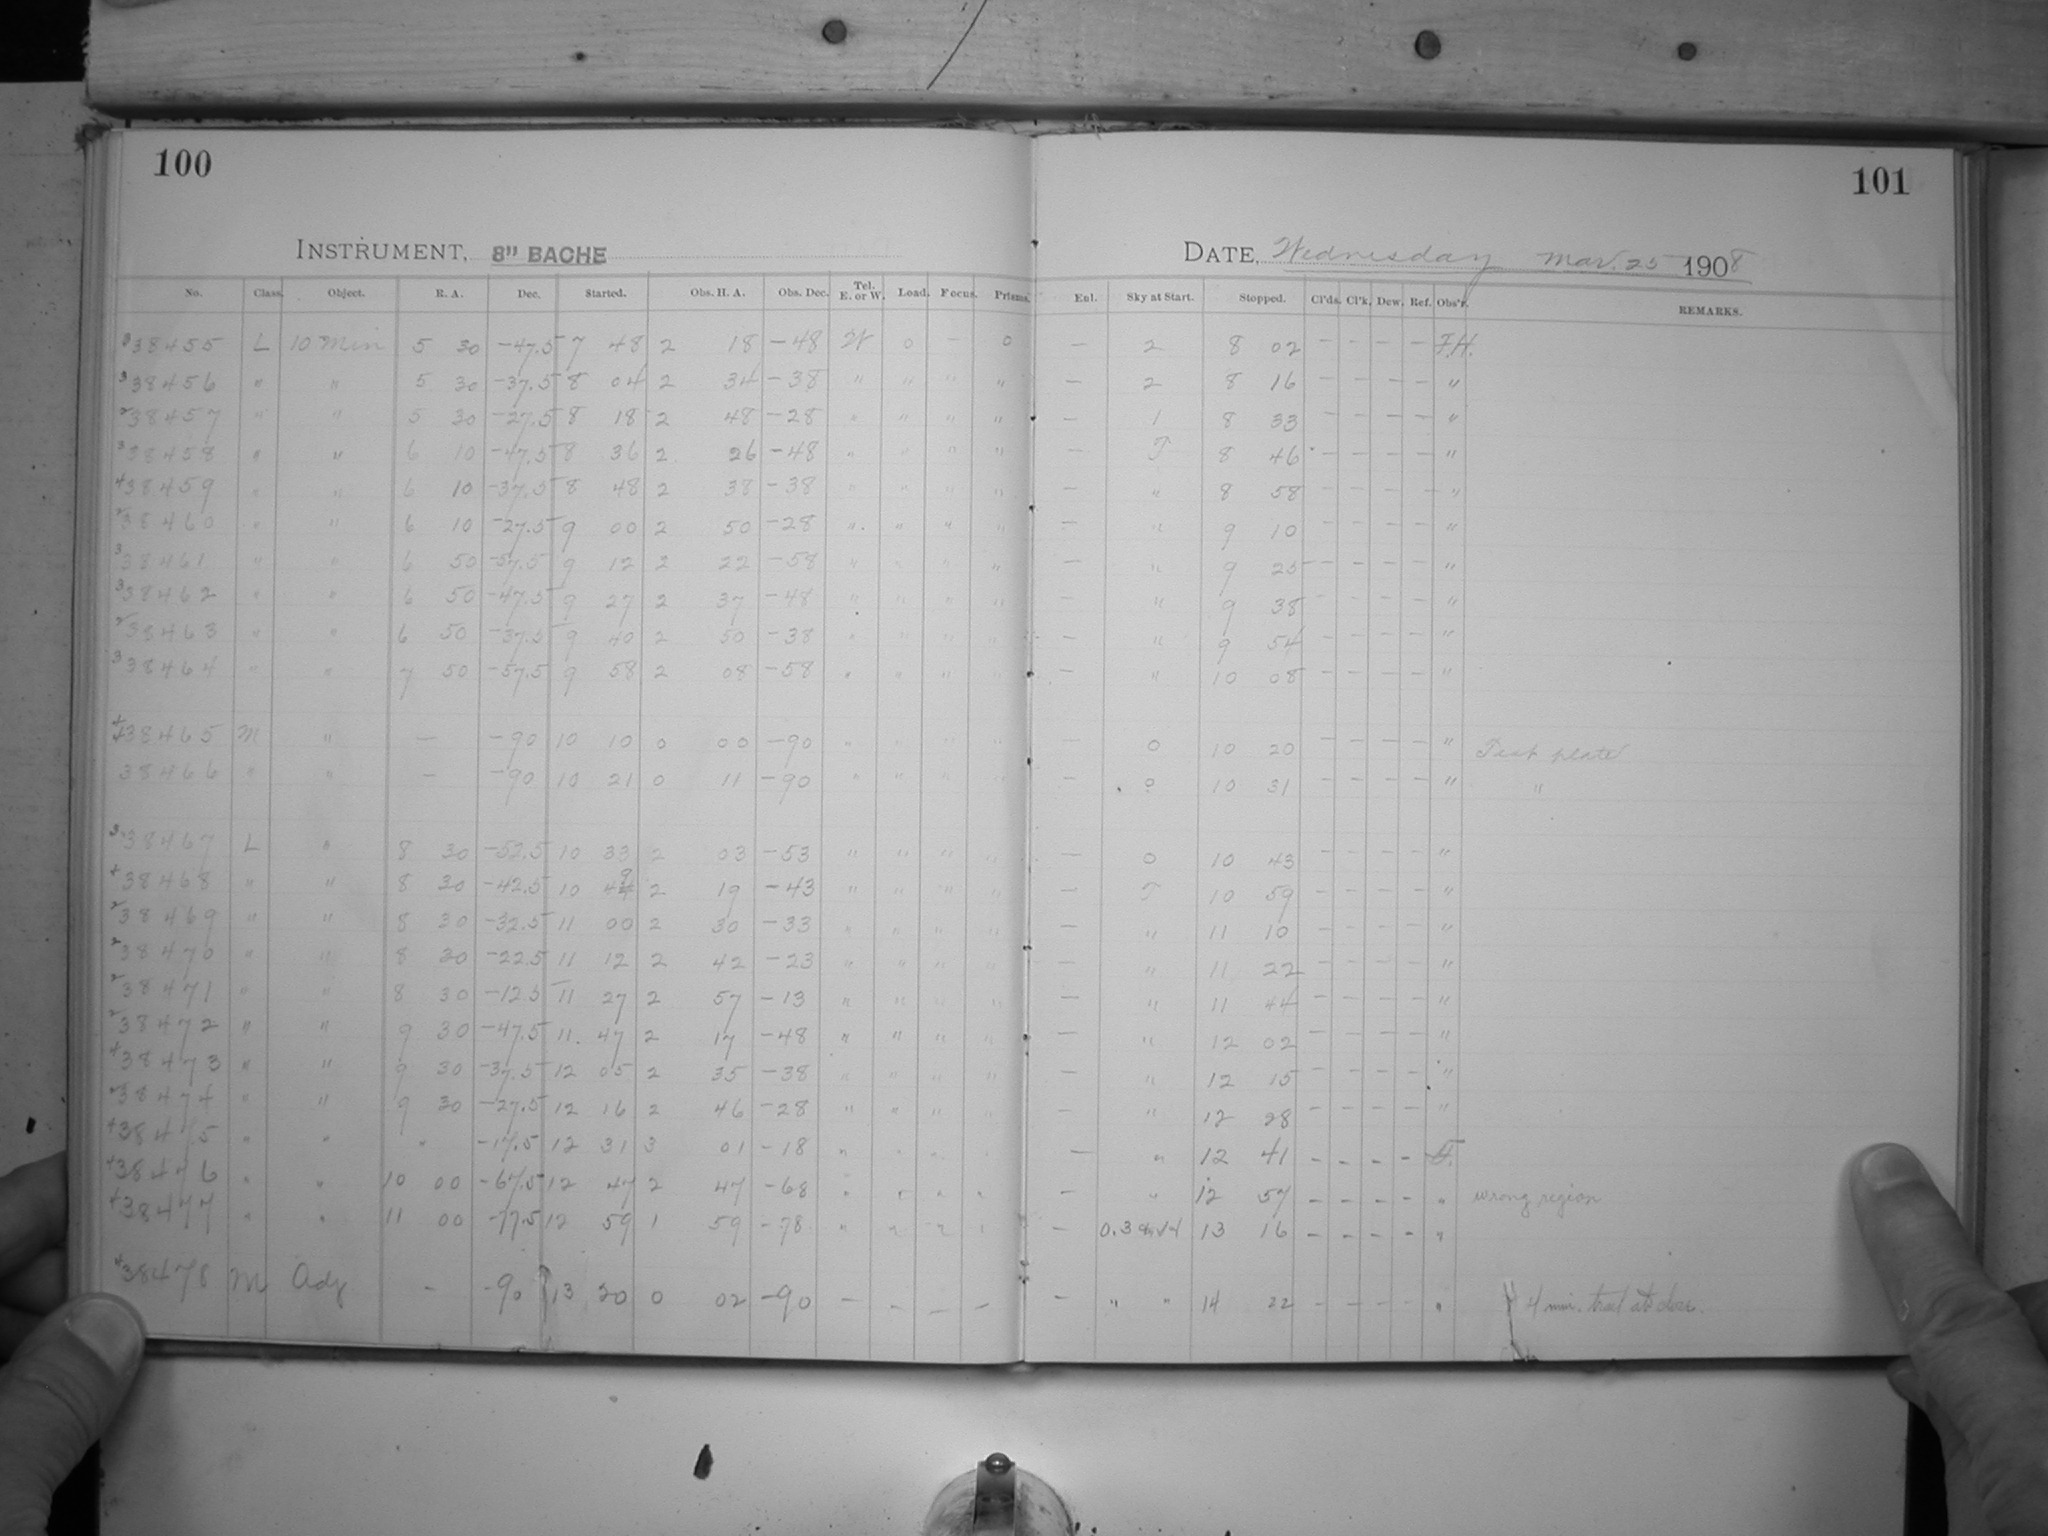 100
101
INSTRUMENT, 8" BACHE
DATE, Wednesday Mar. 25 1908
No. Class. Object. R. A. Dec. Started. Obs. H. A. Obs. Dec. Tel. E. or W. Load. Focus. Prisms. Enl. Sky at Start. Stopped. Cl'ds. Cl'k. Dew. Ref. Obs'r. REMARKS.
38455 L 10 Min 5 30 -47.5 7 48 2 18 -48 W 0 - 0 - 2 8 02 - - - - F.H.
38456 " " 5 30 -37.5 8 04 2 34 -38 " " " " - 2 8 16 - - - - "
38457 " " 5 30 -27.5 8 18 2 48 -28 " " " " - 1 8 33 - - - - "
38458 " " 6 10 -47.5 8 36 2 26 -48 " " " " - T 8 46 - - - - "
38459 " " 6 10 -37.5 8 48 2 38 -38 " " " " - " 8 58 - - - - "
38460 " " 6 10 -27.5 9 00 2 50 -28 " " " " - " 9 10 - - - - "
38461 " " 6 50 -57.5 9 12 2 22 -58 " " " " - " 9 25 - - - - "
38462 " " 6 50 -47.5 9 27 2 37 -48 " " " " - " 9 38 - - - - "
38463 " " 6 50 -37.5 9 40 2 50 -38 " " " " - " 9 54 - - - - "
38464 " " 7 50 -57.5 9 58 2 08 -58 " " " " - " 10 08 - - - - "
38465 M " - -90 10 10 0 00 -90 " " " " - 0 10 20 - - - - " Test plate
38466 " " - -90 10 21 0 11 -90 " " " " - 0 10 31 - - - - " "
38467 L " 8 30 -52.5 10 33 2 03 -53 " " " " - 0 10 43 - - - - "
38468 " " 8 30 -42.5 10 48 2 19 -43 " " " " - T 10 59 - - - - "
38469 " " 8 30 -32.5 11 00 2 30 -33 " " " " - " 11 10 - - - - "
38470 " " 8 30 -22.5 11 12 2 42 -23 " " " " - " 11 22 - - - - "
38471 " " 8 30 -12.5 11 27 2 57 -13 " " " " - " 11 44 - - - - "
38472 " " 9 30 -47.5 11 47 2 17 -48 " " " " - " 12 02 - - - - "
38473 " " 9 30 -37.5 12 05 2 35 -38 " " " " - " 12 15 - - - - "
38474 " " 9 30 -27.5 12 16 2 46 -28 " " " " - " 12 28 - - - - "
38475 " " " -17.5 12 31 3 01 -18 " " " " - " 12 41 - - - -
38476 " " 10 00 -67.5 12 47 2 47 -68 " " " " - " 12 57 - - - - " wrong region
38477 " " 11 00 -77.5 12 59 1 59 -78 " " " " - 0.3 13 16 - - - - "
38478 M Adj - -90 13 20 0 02 -90 - - - - - " " 14 22 - - - - " 4 min. trail at close.